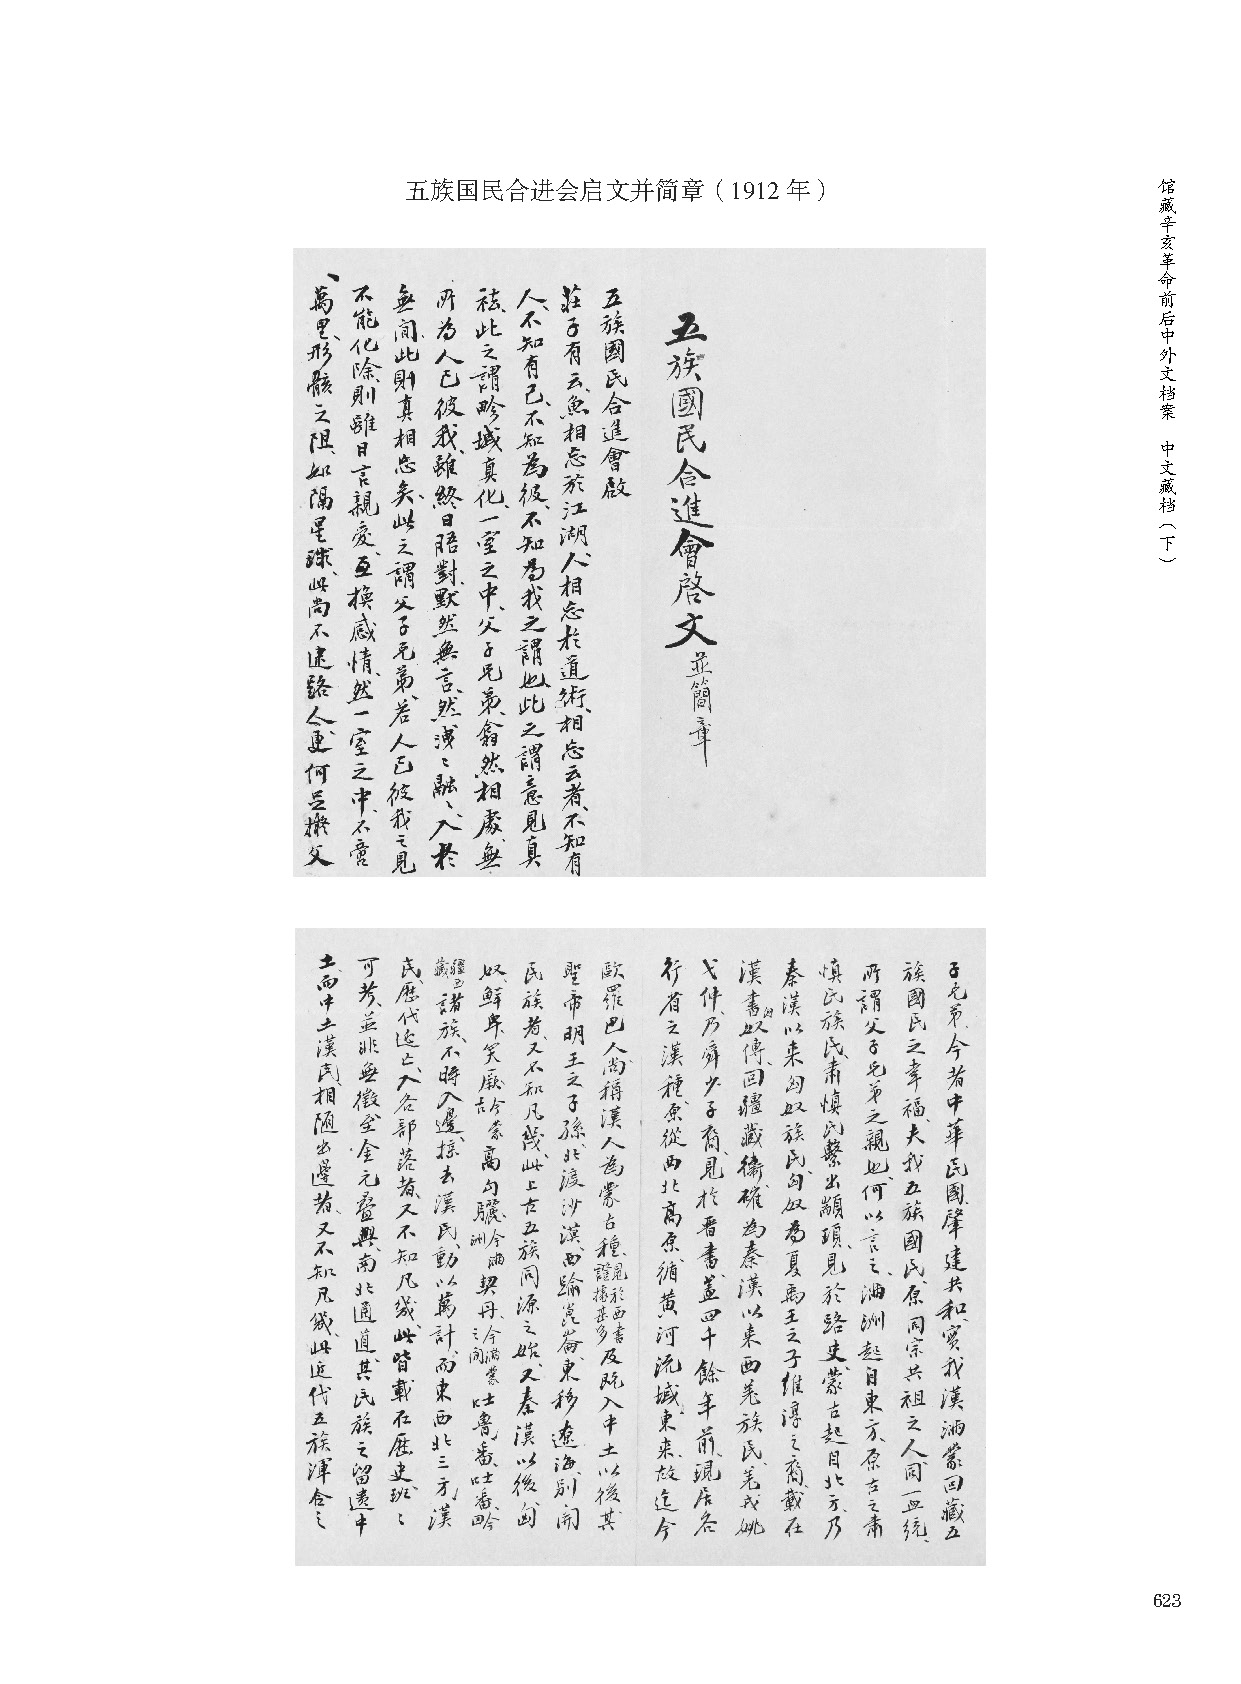 五族国民合进会启文并简章（1912 年）
馆藏辛亥革命前后中外文档案　中文藏档（下）
五族國民合進會啓文並簡章
五族國民合進會啟
莊子有云、魚相忘於江湖、人相忘於道術、相忘云者、不知有
人、不知有己、不知為彼、不知為我之謂也、此之謂意見真
祛、此之謂畛域真化、一室之中、父子兄弟、翕然相處、無
所為人己彼我、雖終日晤對、默然無言、然浅〻融〻、入於
無間、此則真相忘矣、此之謂父子兄弟、若人己彼我之見
不能化除、則雖日言親愛、互換感情、然一室之中、不啻
萬里、形骸之阻、如隔星球、此尚不逮路人、更何足擬父
子兄弟、今者中華民國、肇建共和、實我漢滿蒙回藏五
族國民之幸福、夫我五族國民、原同宗共祖之人、同一血統、
所謂父子兄弟之親也、何以言之、滿洲起自東方、原古之肅
慎民族、肅慎氏繫出顓頊、見於路史、蒙古起自北方、乃
秦漢以來匈奴族民、匈奴為夏禹王之子維淳之裔、載在
漢書匈奴傳、回疆藏衞、確為秦漢以来西羌族民、羌戎姚
弋仲、乃舜少子裔、見於晋書、蓋四千餘年前、現居各
行省之漢種、原從西北高原、循黄河流域、東来、故迄今
歐羅巴人尚稱漢人為蒙古種、見於西書證據甚多及既入中土以後、其
聖帝明王之子孫、北渡沙漠、西踰崑崙、東移遼海、別開
民族者、又不知凡幾、此上古五族同源之始、又秦漢以後、匈
奴、鮮卑、突厥、今蒙古高句驪、今滿洲契丹、今滿蒙之間吐魯番、吐番、今回
疆西藏諸族、不時入邊、掠去漢民、動以萬計、而東西北三方、漢
民歷代逃亡、入各部落者、又不知凡幾、此皆載在歷史、班〻
可考、並非無徵、至金元疊興、南北通道、其民族之留遺中
土、而中土漢民、相隨出邊者、又不知凡幾、此近代五族渾合之
623